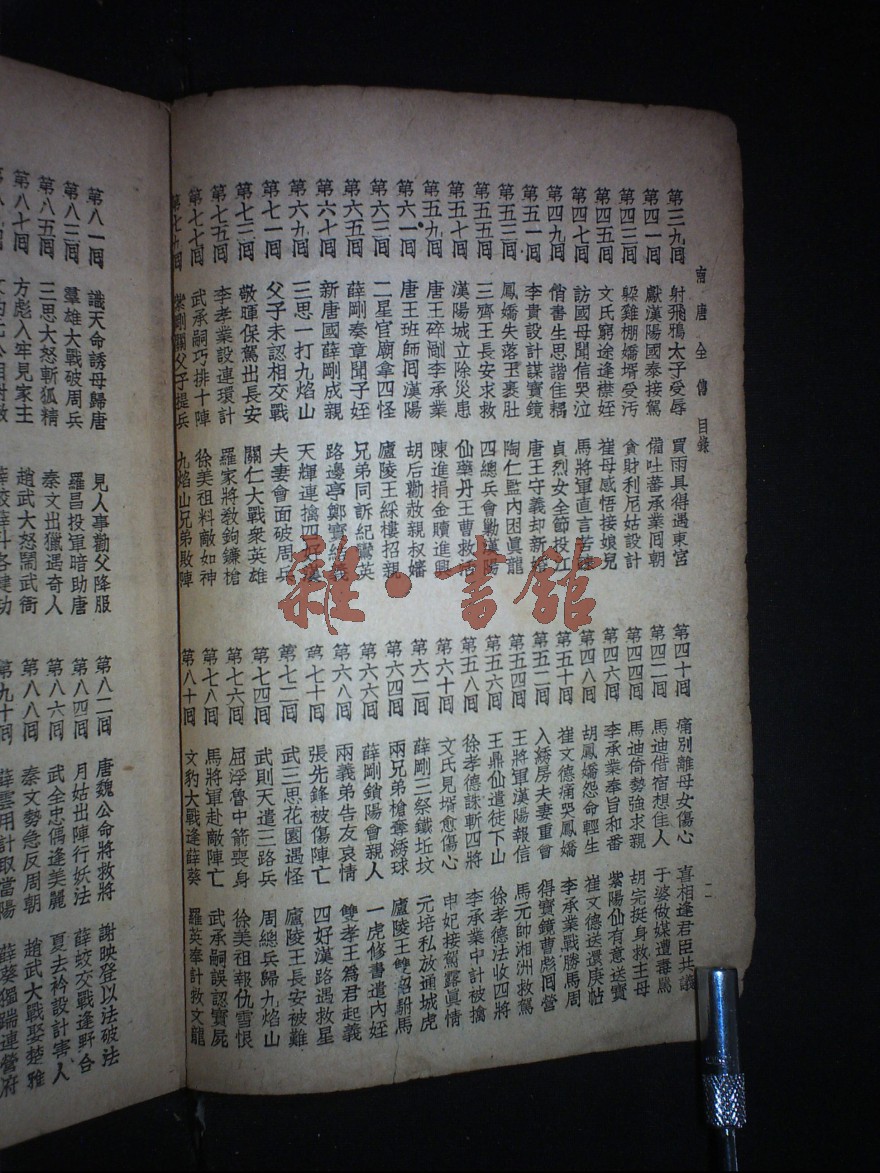 南唐全傳 目錄 二
第三九囘 射飛鴉太子受辱 買雨具得遇東宮 第四十囘 痛別離母女傷心 喜相逢君臣共議
第四一囘 獻漢陽國泰接駕 備吐蕃承業囘朝 第四二囘 馬迪借宿想佳人 于婆做媒遭毒罵
第四三囘 躲雞棚嬌壻受污 貪財利尼姑設計 第四四囘 馬迪倚勢強求親 胡完挺身救主母
第四五囘 文氏窮途逢襟姪 崔母感悟接娘兒 第四六囘 李承業奉旨和番 紫陽仙有意送寶
第四七囘 訪國母聞信哭泣 馬將軍直言苦 第四八囘 胡鳳嬌怨命輕生 崔文德送還庚帖
第四九囘 偕書生思諧佳耦 貞烈女全節投江 第五十囘 崔文德痛哭鳳嬌 李承業戰勝馬周
第五一囘 李貴設計謀寶鏡 唐王守義却新 第五二囘 入綉房夫妻重會 得寶鏡曹彪囘營
第五三囘 鳳嬌失落玉裹肚 陶仁監內困眞龍 第五四囘 王將軍漢陽報信 馬元帥湘洲救駕
第五五囘 三齊王長安求救 四總兵會勦漢陽 第五六囘 王鼎仙遣徒下山 徐孝德法收四將
第五七囘 漢陽城立除災患 仙藥丹王曹救活 第五八囘 徐孝德誅斬四將 李承業中計被擒
第五九囘 唐王碎剮李承業 陳進捐金贖進興 第六十囘 文氏見壻愈傷心 申妃接駕露眞情
第六一囘 唐王班師囘漢陽 胡后勸赦親叔嬸 第六二囘 薛剛三祭鐵坵坟 元培私放通城虎
第六三囘 二星官廟拿四怪 廬陵王綵樓招親 第六四囘 兩兄弟槍奪綉球 廬陵王雙招駙馬
第六五囘 薛剛奏章聞子姪 兄弟同訴紀鸞英 第六六囘 薛剛鎖陽會親人 一虎修書遣內姪
第六十囘 新唐國薛剛成親 路邊亭鄭寶結義 第六八囘 兩義弟告友哀情 雙孝王爲君起義
第六九囘 三思一打九焰山 天輝連擒四好漢 第七十囘 張先鋒被傷陣亡 四好漢路遇救星
第七一囘 父子未認相交戰 夫妻會面破周兵 第七二囘 武三思花園遇怪 廬陵王長安被難
第七三囘 敬暉保駕出長安 關仁大戰衆英雄 第七四囘 武則天遣三路兵 周總兵歸九焰山
第七五囘 李孝業設連環計 羅家將教鉤鐮槍 第七六囘 屈浮魯中箭喪身 徐美祖報仇雪恨
第七七囘 武承嗣巧排十陣 徐美祖料敵如神 第七八囘 馬將軍赴敵陣亡 武承嗣誤認寶屍
第七九囘 紫剛關父子提兵 九焰山兄弟敗陣 第八十囘 文豹大戰逢薛葵 羅英奉計救文龍
第八一囘 識天命誘母歸唐 見人事勸父降服 第八二囘 唐魏公命將救將 謝映登以法破法
第八三囘 羣雄大戰破周兵 羅昌投軍暗助唐 第八四囘 月姑出陣行妖法 薛蛟交戰逢野合
第八五囘 三思大怒斬狐精 秦文出獵遇奇人 第八六囘 武全忠偶逢美麗 夏去衿設計害人
第八十囘 方彪入牢見家主 趙武大怒鬧武衙 第八八囘 秦文勢急反周朝 趙武大戰娶楚雅
第九十囘 薛雲用計取當陽 薛葵獨踹連營府